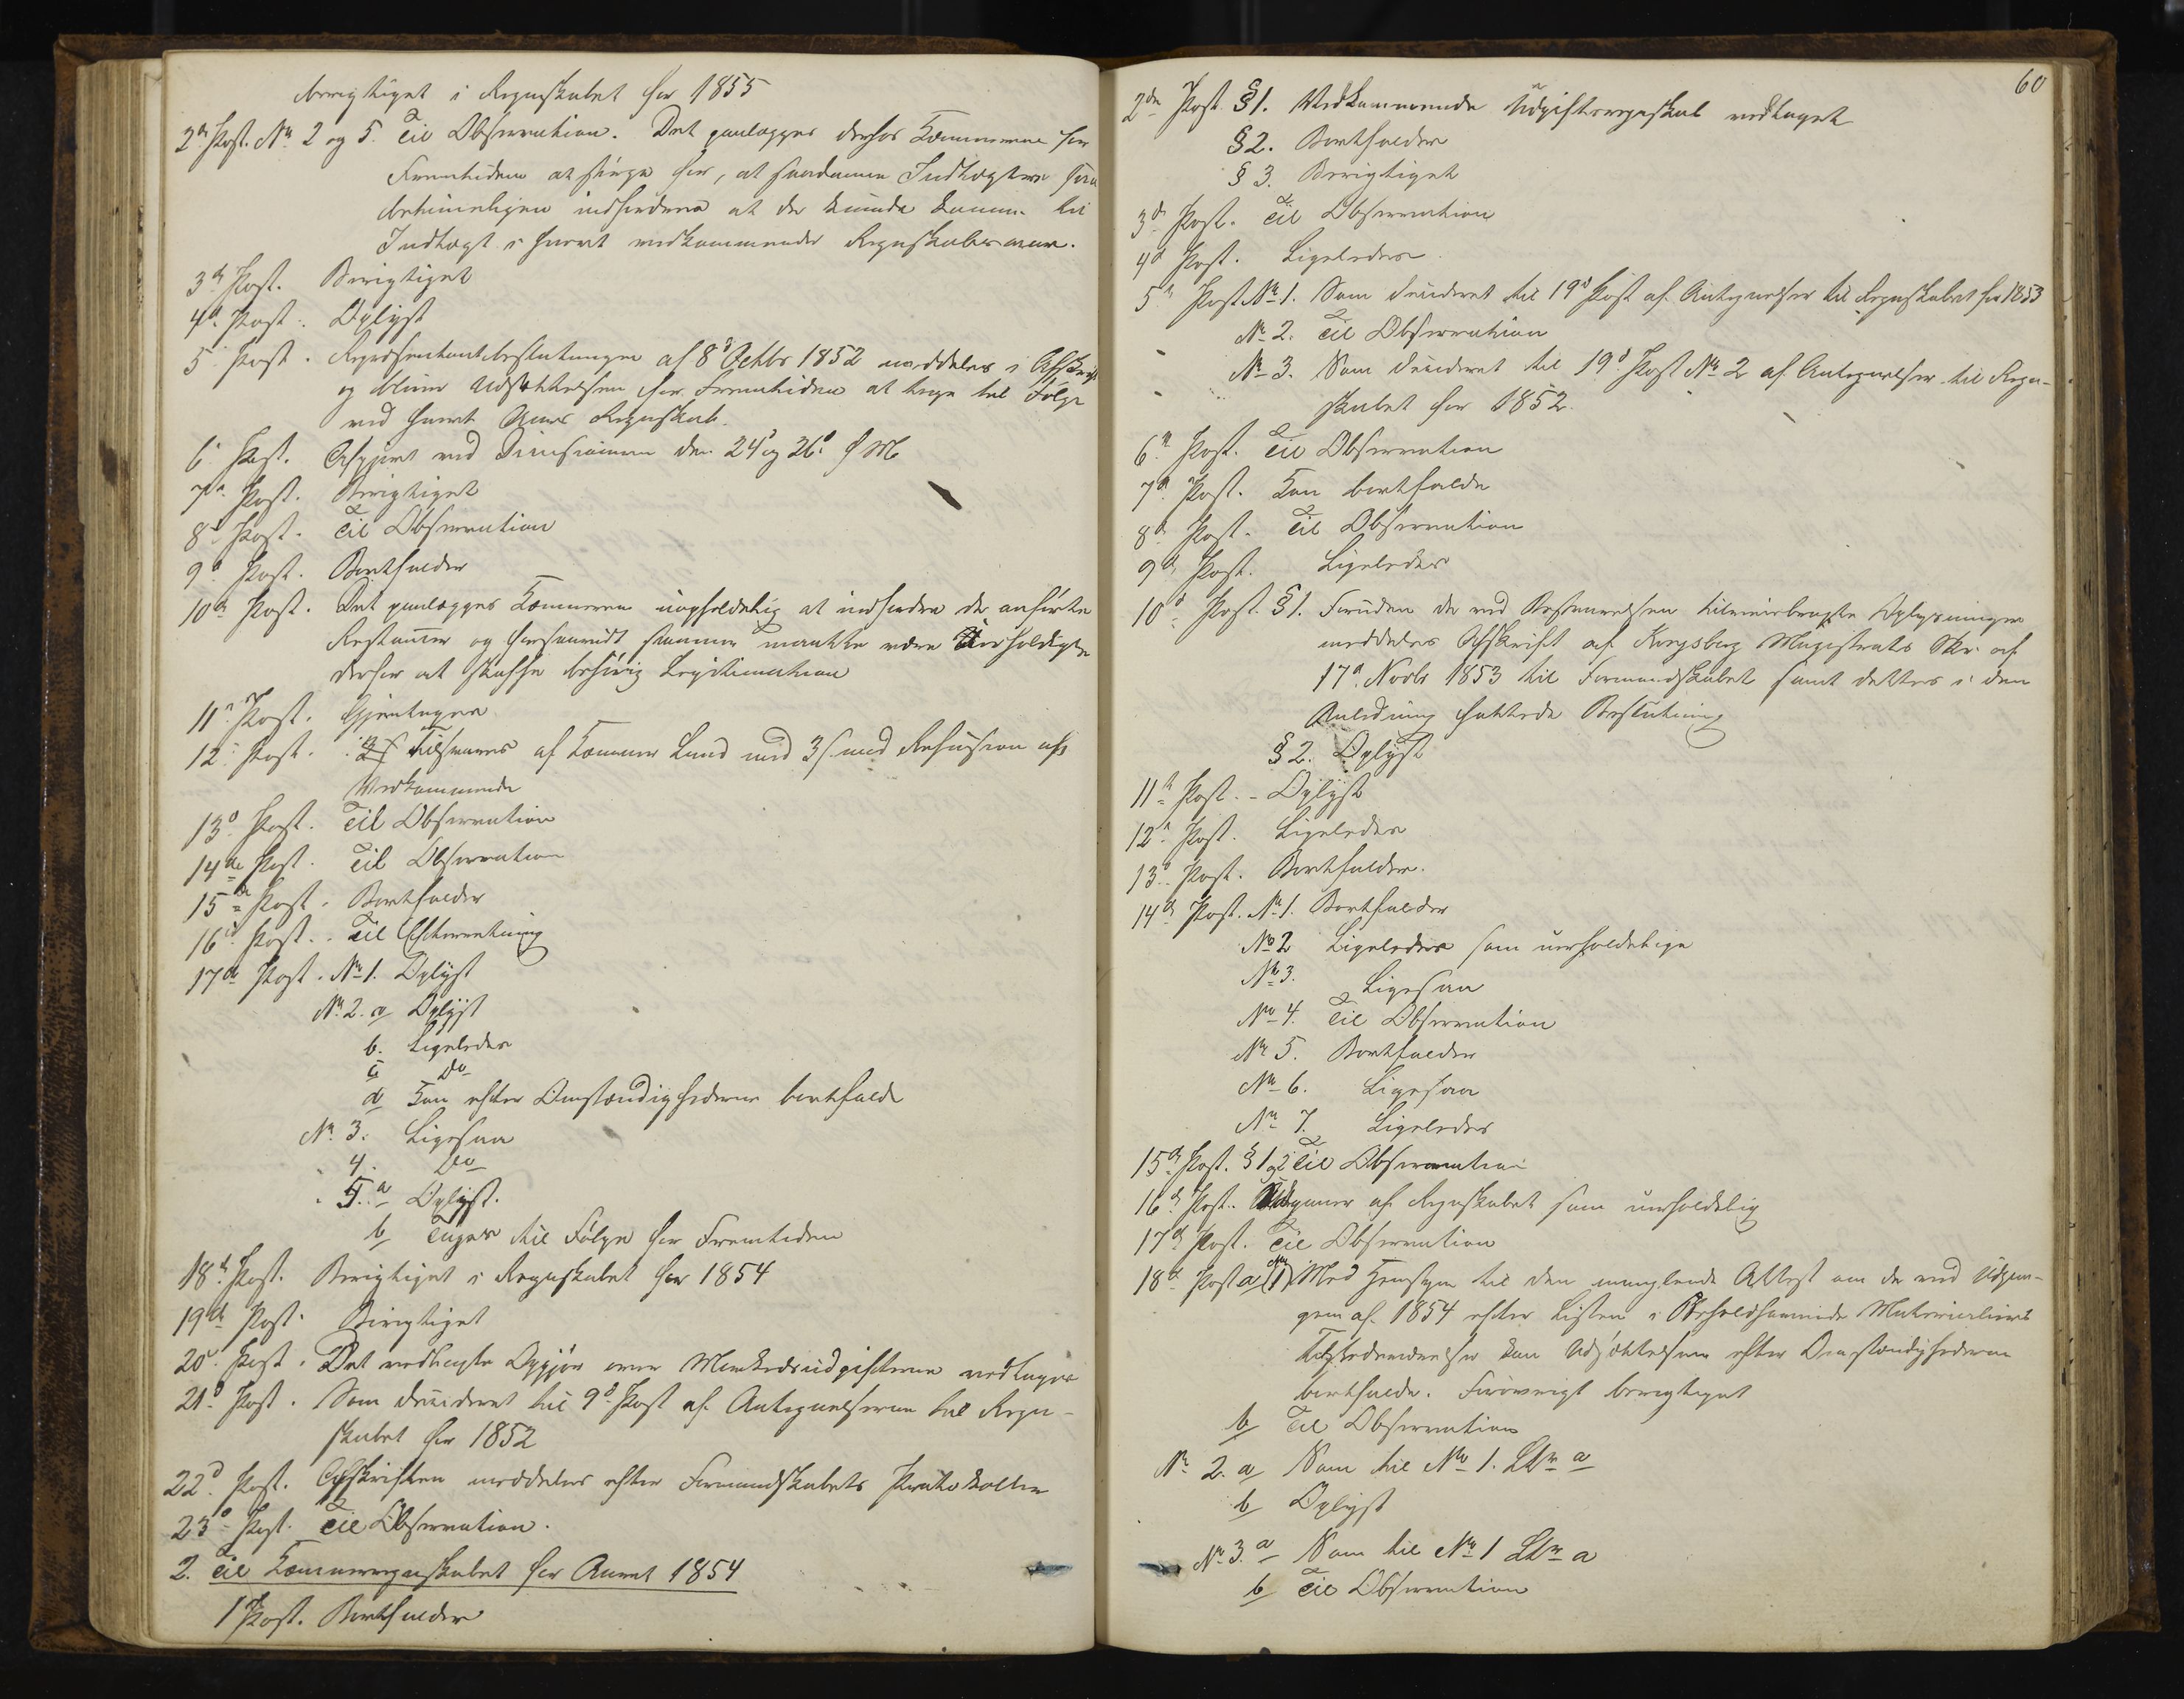 berigtiget i Regnskabet for 1855
2den Post. No 2 og 5. Til Observation. Det paalægges derhos Kæmneren for
Fremtiden at sørge for, at saadanne Indtægter saa
betimeligen indfordres at de kunde komme til
Indtægt i hvert vedkommende Regnskabsaar.
3die Post. Berigtiget
4de Post. Oplyst
5 Post. Repræsentantbeslutningen af 8de Octbr 1852 meddeles i Afskrift
og bliver Udsættelsen for Fremtiden at tage til Følge
ved hvert Aars Regnskab.
6 Post. Afgjort ved Decisionen den 24de og 26d f M
7de Post. Berigtiget
8de Post. Til Observation
9de Post. Bortfalder
10de Post. Det paalægges Kæmneren uopholdelig at indfordre de anførte
Restancer og forsaavidt samme maatte være uerholdelige
derfor at skaffe behørig Legitimation
11te Post. Gjentages
12 Post. tilsvares af Kæmner Lund med 3 s. med Refusion af
Vedkommende
13de Post. Til Observation
14de Post. Til Observation
15de Post. Bortfalder
16de Post. Til Efterretning
17de Post. No 1. Oplyst
No 2. a Oplyst
b. Ligeledes
c Do
d Kan efter Omstændighederne bortfalde
No 3. Ligesaa
4. Do
5. a Oplyst.
b Tages til Følge for Fremtiden
18de Post. Berigtiget i Regnskabet for 1854
19de Post. Berigtiget
20de Post. Det vedlagte Opgjør over Markedsudgifterne vedtages
21de Post. Som decideret til 9de Post af Antegnelserne til Regn-
skabet for 1852
22de Post. Afskriften meddeles efter Formandskabets Protokoller
23de Post. Til Observation.
2. Til Kæmnerregnskabet for Aaret 1854
1 Post. Bortfalder
60
2den Post. § 1. Vedkommende Udgiftsregnskab vedtaget
§ 2. Bortfalder
§ 3. Berigtiget
3de Post. Til Observation
4de Post. Ligeledes
5te Post No 1. Som decideret til 19de Post af Antegnelser til Regnskabet for 1853
No 2. Til Observation
No 3. Som decideret til 19de Post No 2 af Antegnelser til Regn-
skabet for 1852.
6te Post. Til Observation
7de Post. Kan bortfalde
8de Post. Til Observation
9de Post. Ligeledes
10de Post. § 1. Foruden de ved Besvarelsen tilveiebragte Oplysninger
meddeles Afskrift af Kongsberg Magistrats Skr. af
17de Novbr 1853 til Formandskabet samt dettes i den
Anledning fattede Beslutning
§ 2. Oplyst
11te Post. - Oplyst
12te Post. Ligeledes
13de Post. Bortfalder.
14de Post. No 1. Bortfalder
No 2 Ligeledes som uerholdelige
No 3. Ligesaa
No 4. Til Observation
No 5. Bortfalder
No 6. Ligesaa
No 7. Ligeledes
15de Post. § 1 og 2 Til Observation
16de Post. Udgaaer af Regnskabet som uerholdelig
17de Post. Til Observation
18de Post a (No 1) Med Hensyn til den manglende Attest om de ved Udgan-
gen af 1854 efter Listen i Beholdhavende Materialiers
Tilstedeværelse kan Udsættelsen efter Omstændighederne
bortfalde. Forøvrigt berigtiget
b Til Observation
No 2. a Som til No 1. Ltr a
b Oplyst
No 3. a Som til No 1 Ltr a
b Til Observation